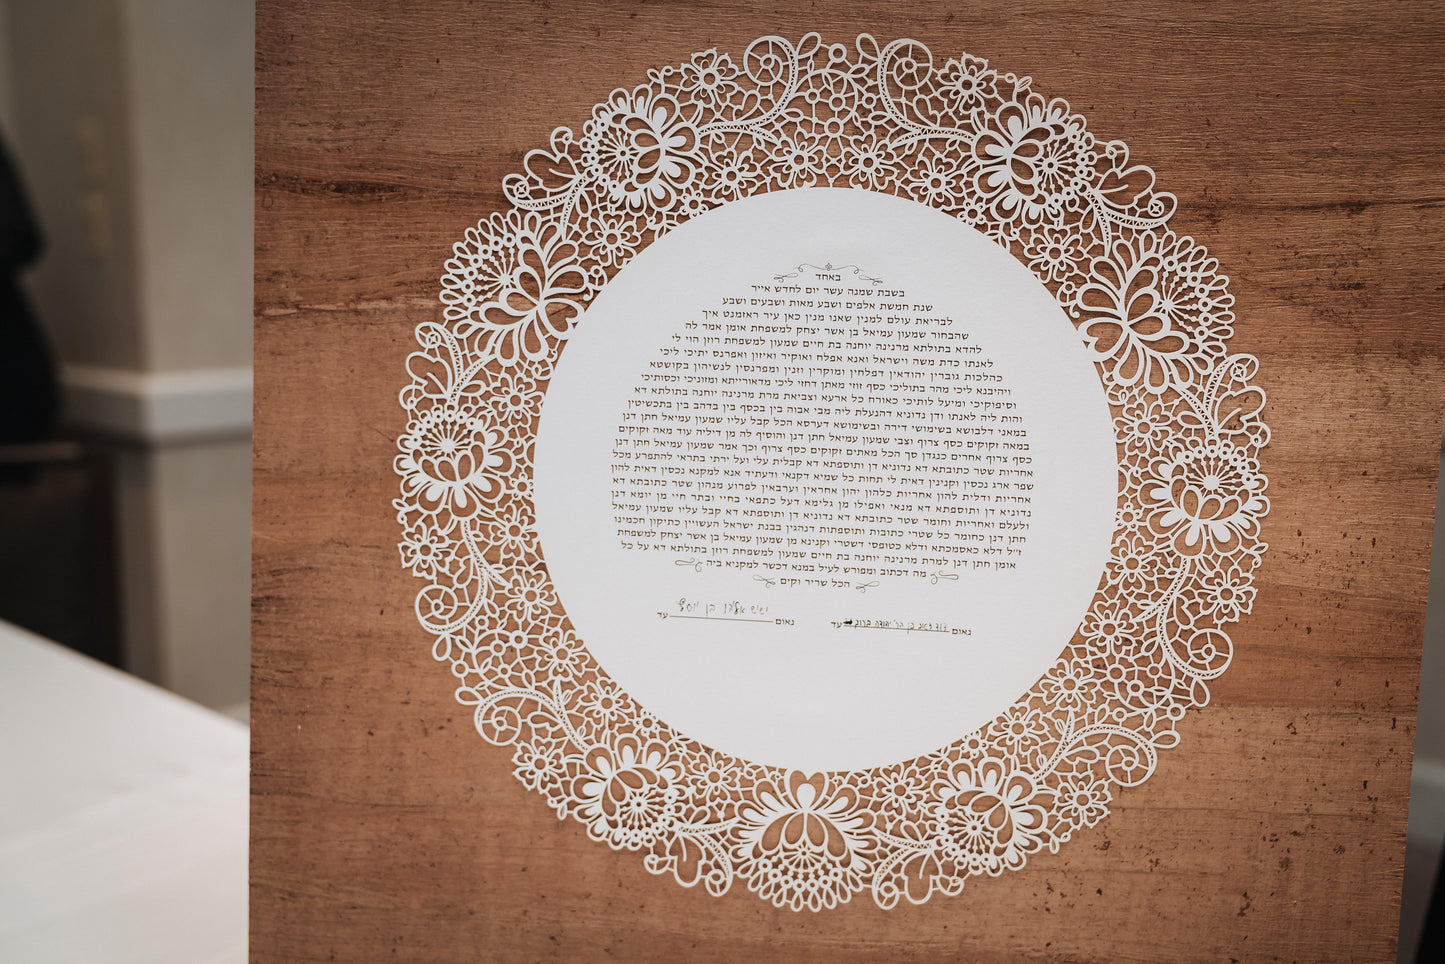 באחד
בשבת שמנה עשר יום לחדש אייר
שנת חמשת אלפים ושבע מאות ושבעים ושבע
לבריאת עולם למנין שאנו מנין כאן עיר ראזמנט איך
שהבחור שמעון עמיאל בן אשר יצחק למשפחת אומן אמר לה
להדא בתולתא מרנינה יוחנה בת חיים שמעון למשפחת רוזן הוי לי
לאנתו כדת משה וישראל ואנא אפלח ואוקיר ואיזון ואפרנס יתיכי ליכי
כהלכות גוברין יהודאין דפלחין ומוקרין וזנין ומפרנסין לנשיהון בקושטא
ויהיבנא ליכי מהר בתוליכי כסף זוזי מאתן דחזי ליכי מדאורייתא ומזוניכי וכסותיכי
וסיפוקיכי ומיעל לותיכי כאורח כל ארעא וצביאת מרת מרנינה יוחנה בתולתא דא
והות ליה לאנתו ודן נדוניא דהנעלת ליה מבי אבוה בין בכסף בין בדהב בין בתכשיטין
במאני דלבושא בשימושי דירה ובשימושא דערסא הכל קבל עליו שמעון עמיאל חתן דנן
במאה זקוקים כסף צרוף וצבי שמעון עמיאל חתן דנן והוסיף לה מן דיליה עוד מאה זקוקים
כסף צרוף אחרים כנגדן סך הכל מאתים זקוקים כסף צרוף וכך אמר שמעון עמיאל חתן דנן
אחריות שטר כתובתא דא נדוניא דן ותוספתא דא קבלית עלי ועל ירתי בתראי להתפרע מכל
שפר ארג נכסין וקנינין דאית לי תחות כל שמיא דקנאי ודעתיד אנא למקנא נכסין דאית להון
אחריות ודלית להון אחריות כלהון יהון אחראין וערבאין לפרוע מנהון שטר כתובתא דא
נדוניא דן ותוספתא דא מנאי ואפילו מן גלימא דעל כתפאי בחיי ובתר חיי מן יומא דנן
ולעלם ואחריות וחומר שטר כתובתא דא נדוניא דן ותוספתא דא קבל עליו שמעון עמיאל
חתן דנן כחומר כל שטרי כתובות ותוספתות דנהגין בבנת ישראל העשויין כתיקון חכמינו
ז״ל דלא כאסמכתא ודלא כטופסי דשטרי וקנינא מן שמעון עמיאל בן אשר יצחק למשפחת
אומן חתן דנן למרת מרנינה יוחנה בת חיים שמעון למשפחת רוזן בתולתא דא על כל
מה דכתוב ומפורש לעיל במנא דכשר למקניא ביה
הכל שריר וקים
נאום עד
נאום בן עד